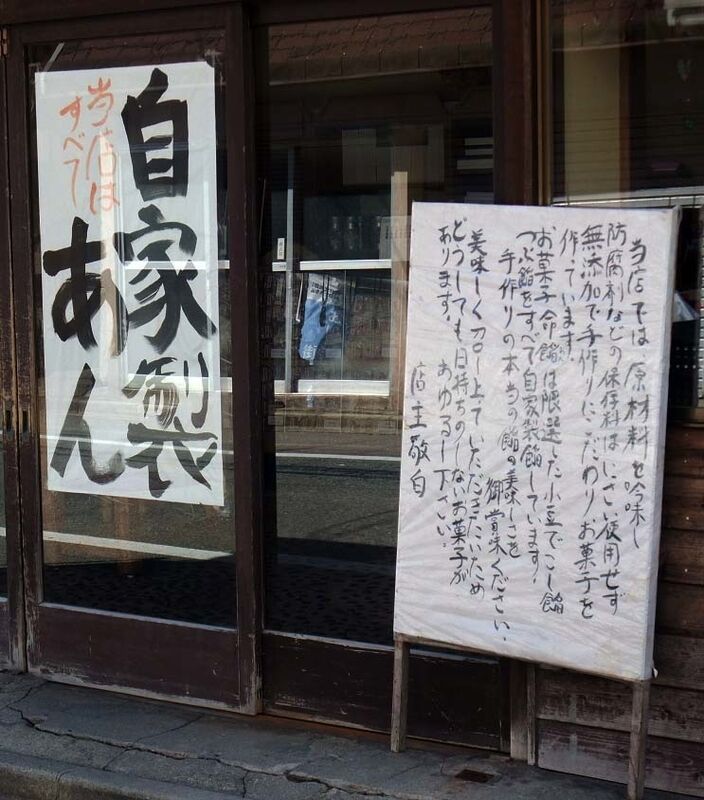 当店は
すべて
自家製
あん
当店では原材料を吟味し
防腐剤などの保存料はいっさい使用せず
無添加で手作りにこだわりお菓子を
作っています。
お菓子の命餡は限選した小豆でこし餡
つぶ餡をすべて自家製餡しています。
手作りの本当の餡の美味しさを
御賞味ください。
美味しく召し上っていただきたいため
どうしても日持ちのしないお菓子が
あります。おゆるし下さい。
店主敬白